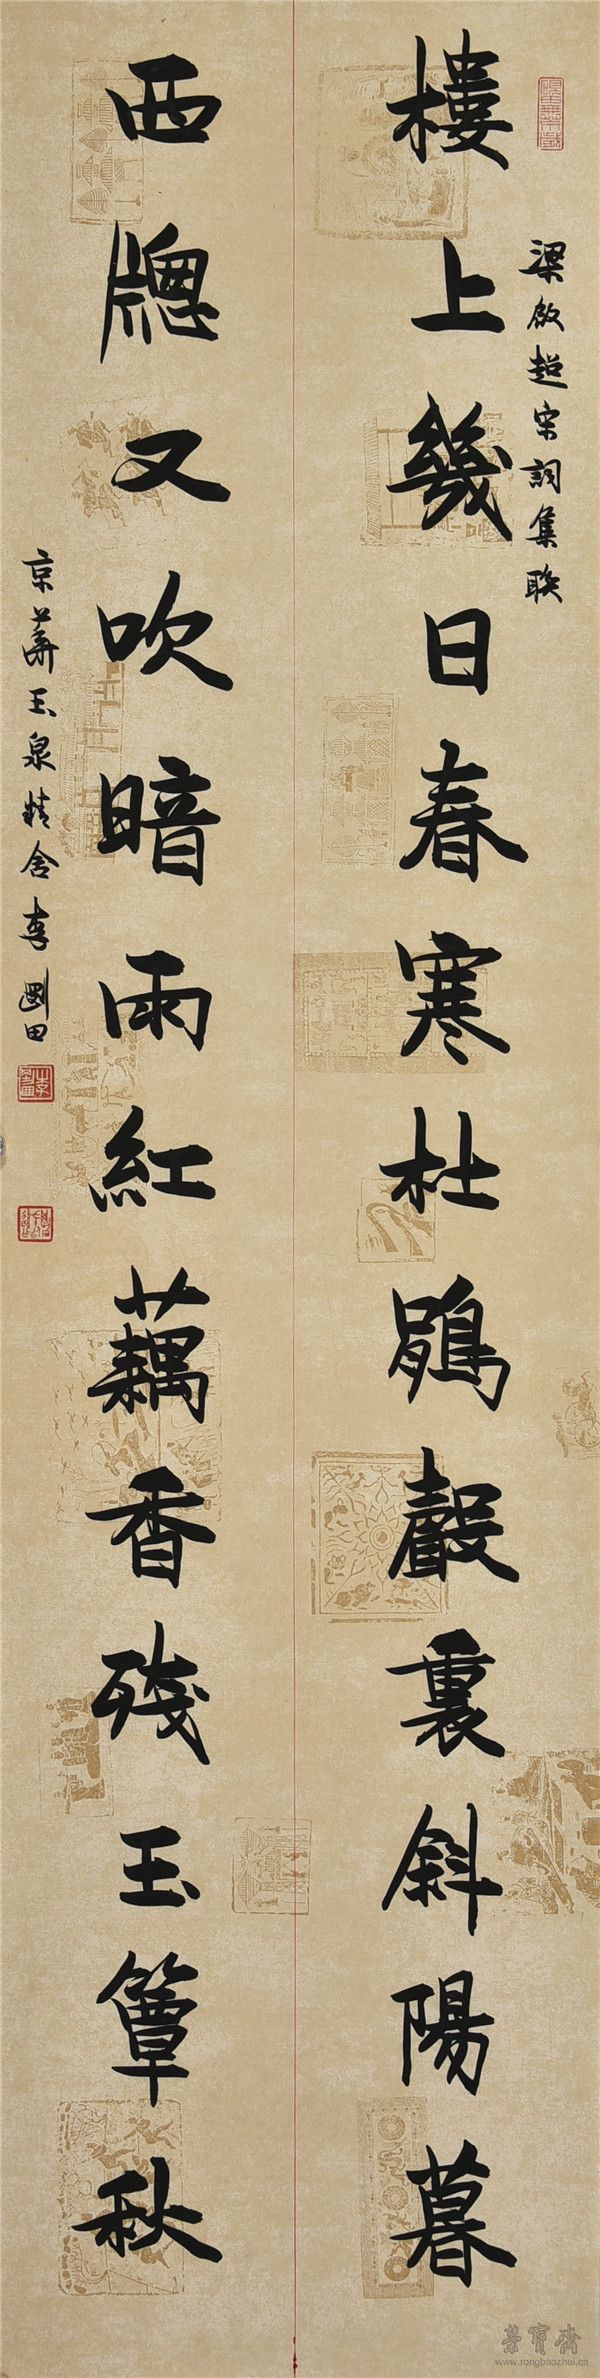 梁啟超宋詞集聯
樓上幾日春寒杜鵑聲裏斜陽暮
西牕又吹暗雨紅藕香殘玉簟秋
京華玉泉精舍李剛田
榮寶齋
www.rongbaozhai.cn